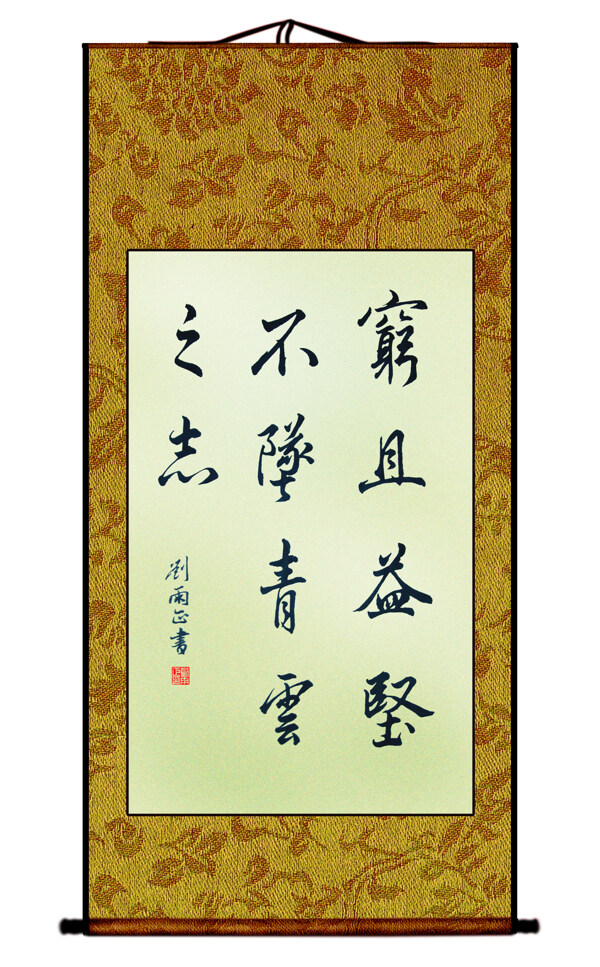 窮且益堅
不墜青雲
之志
劉雨正書